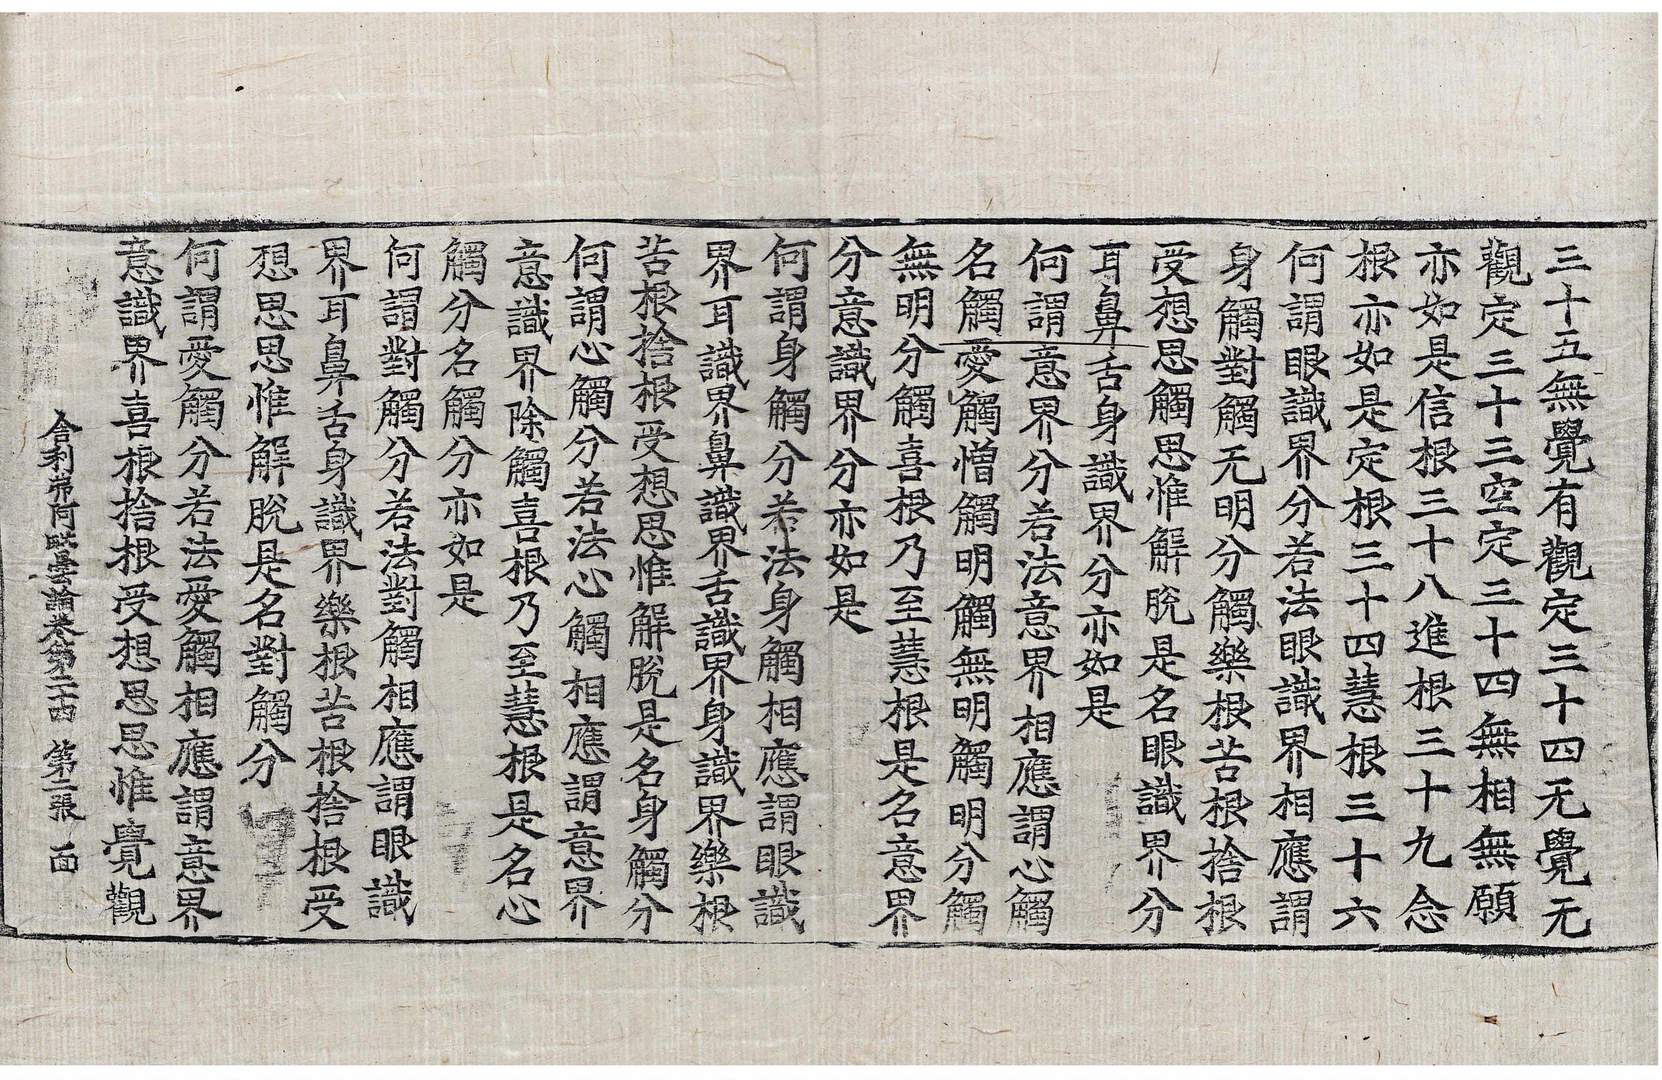 三十五無覺有觀定三十四无覺无
觀定三十三空定三十四無相無願
亦如是信根三十八進根三十九念
根亦如是定根三十四慧根三十六
何謂眼識界分若法眼識界相應謂
身觸對觸无明分觸樂根苦根捨根
受想思觸思惟解脫是名眼識界分
耳鼻舌身識界分亦如是
何謂意界分若法意界相應謂心觸
名觸愛觸憎觸明觸無明觸明分觸
無明分觸喜根乃至慧根是名意界
分意識界分亦如是
何謂身觸分若法身觸相應謂眼識
界耳識界鼻識界舌識界身識界樂根
苦根捨根受想思惟解脫是名身觸分
何謂心觸分若法心觸相應謂意界
意識界除觸喜根乃至慧根是名心
觸分名觸分亦如是
何謂對觸分若法對觸相應謂眼識
界耳鼻舌身識界樂根苦根捨根受
想思思惟解脫是名對觸分
何謂愛觸分若法愛觸相應謂意界
意識界喜根捨根受想思思惟覺觀
舍利弗阿毗曇論卷第二十四 第二張 面